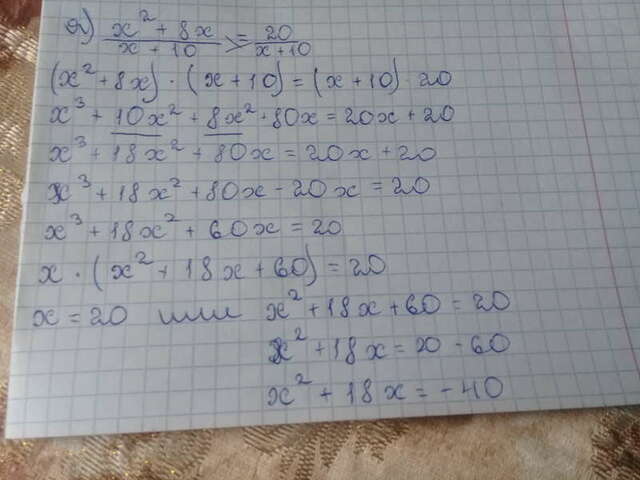 а) (x² + 8x)/(x + 10) = 20/(x + 10)
(x² + 8x) · (x + 10) = (x + 10) · 20
x³ + 10x² + 8x² + 80x = 20x + 20
x³ + 18x² + 80x = 20x + 20
x³ + 18x² + 80x - 20x = 20
x³ + 18x² + 60x = 20
x · (x² + 18x + 60) = 20
x = 20 или x² + 18x + 60 = 20
x² + 18x = 20 - 60
x² + 18x = -40